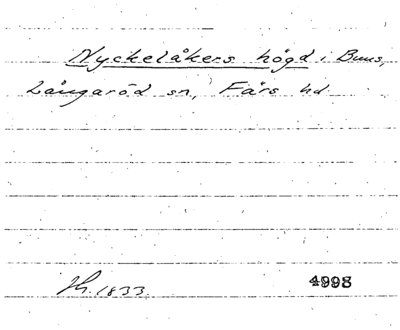 Nyckelåkers högd i Buus,
Långaröd sn, Färs hd
1833
4998